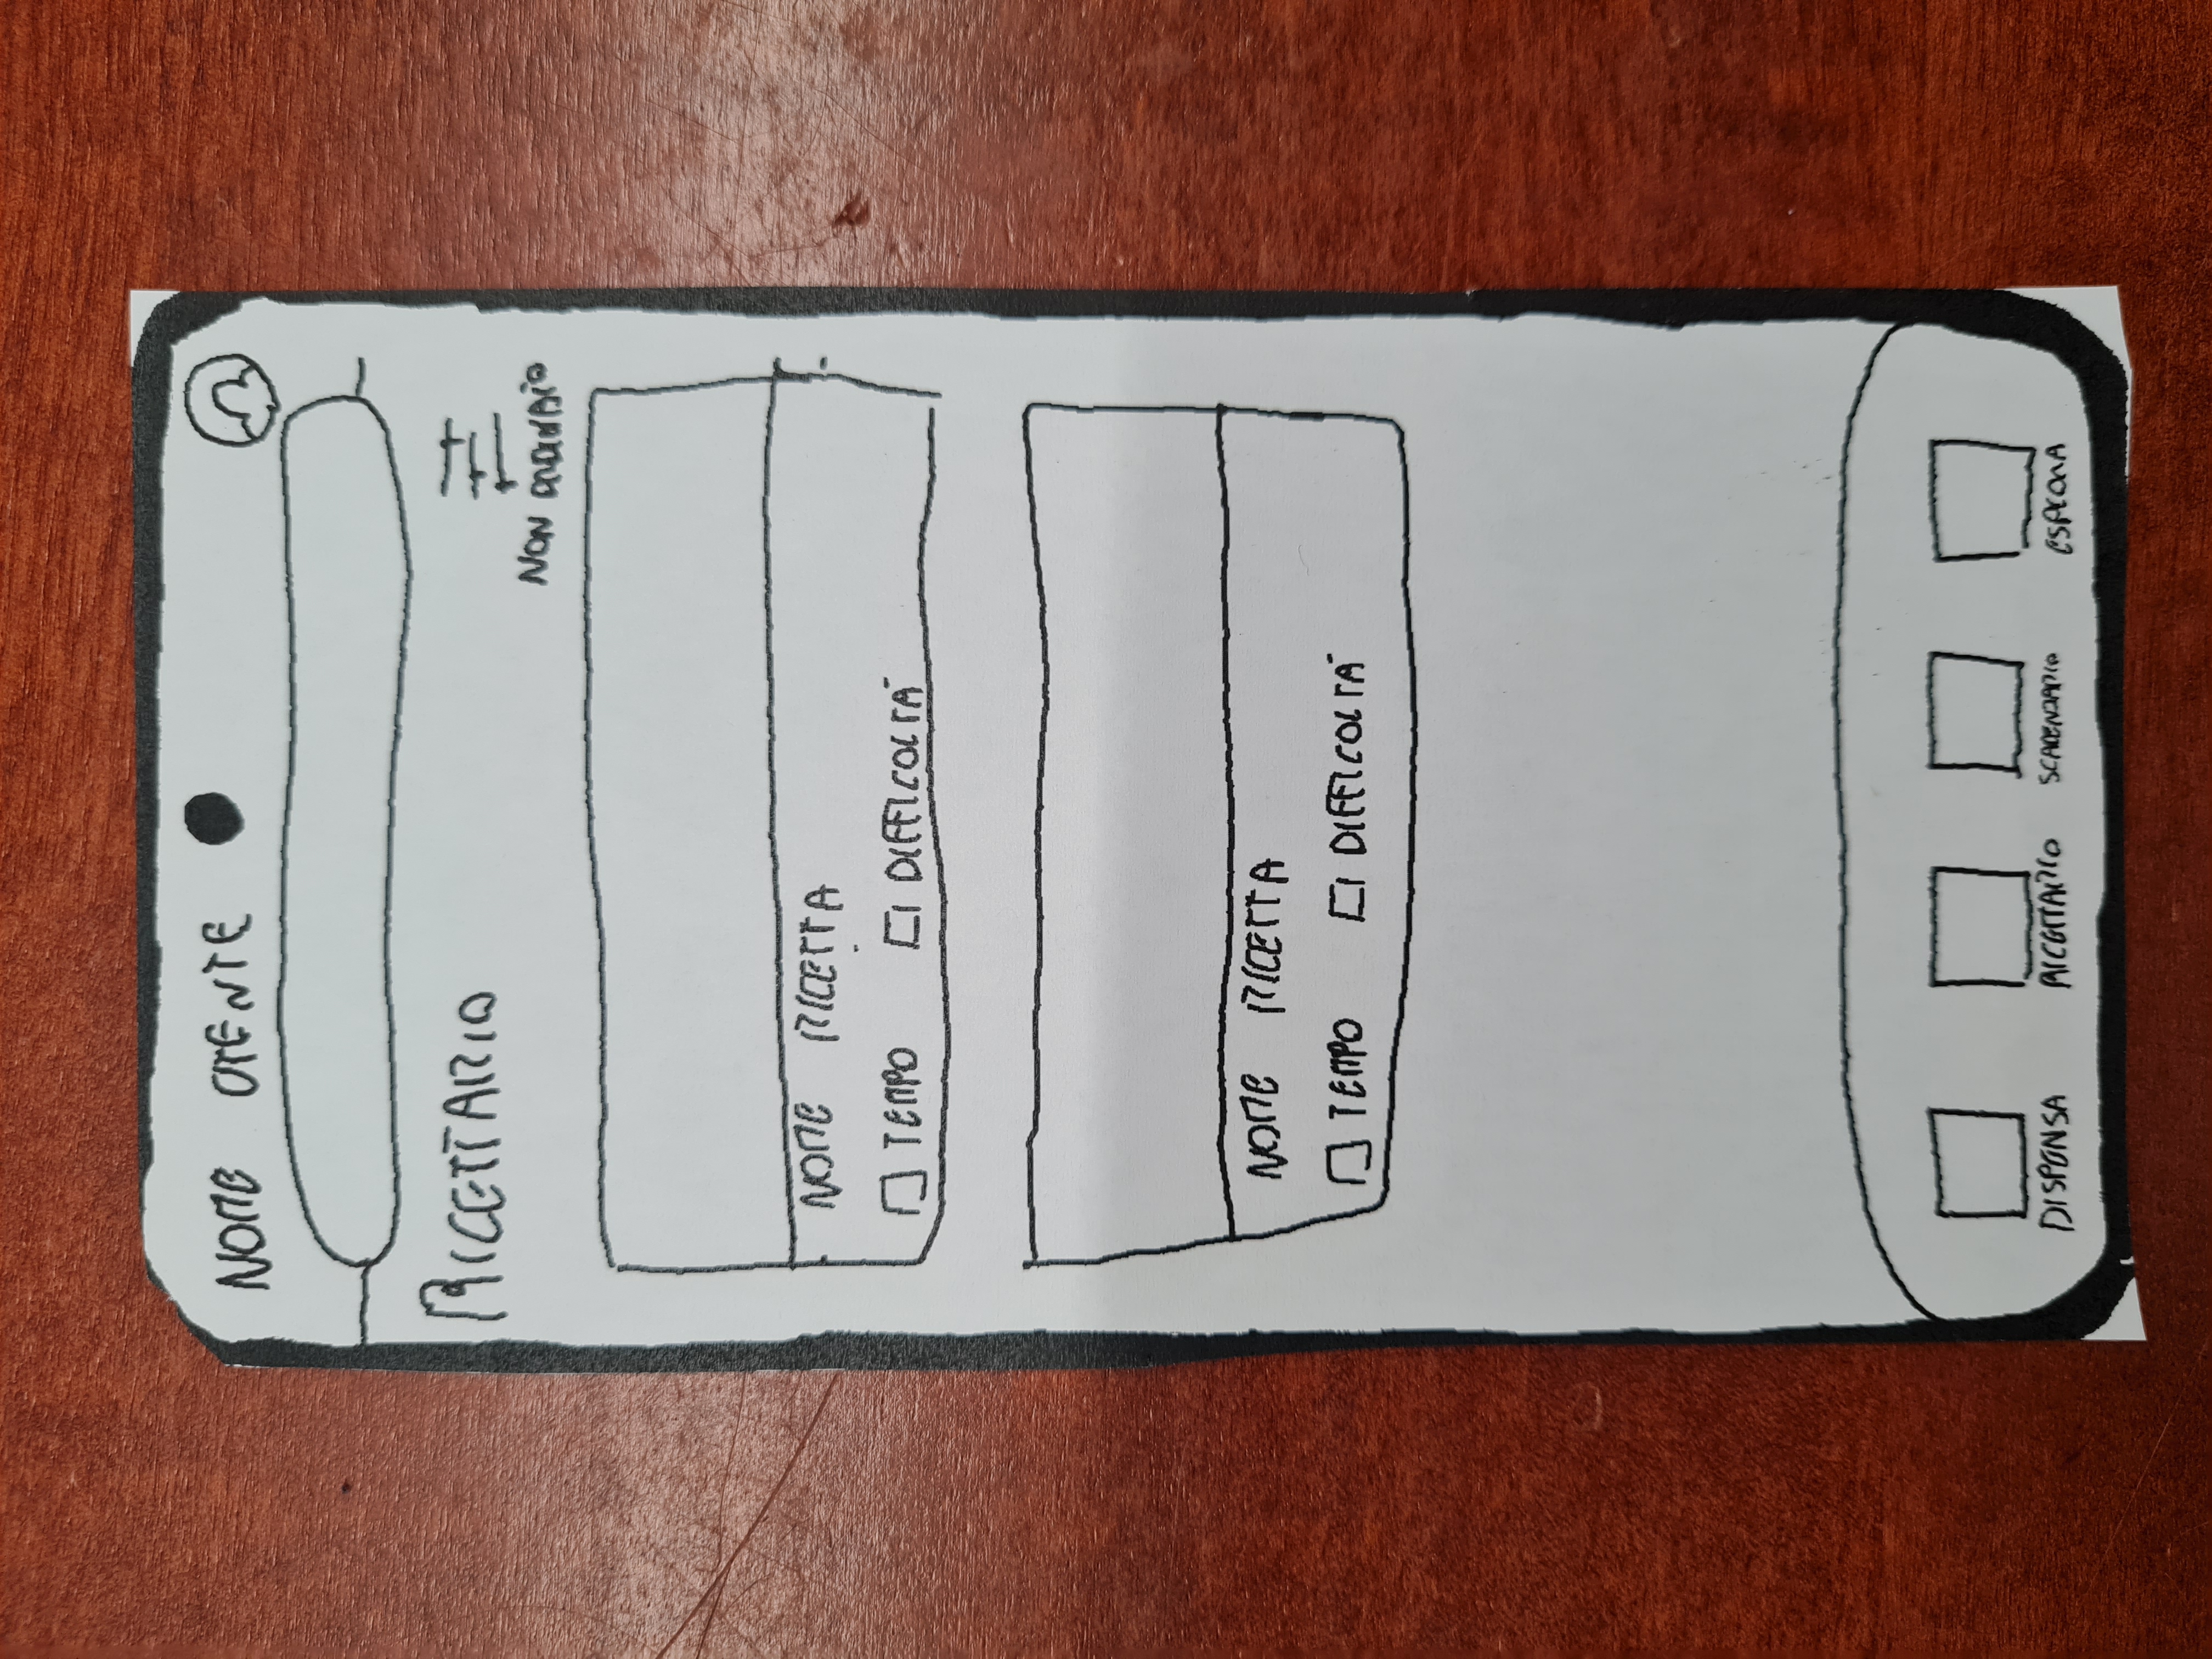 NOME UTENTE
RICETTARIO
NON ORDINATO
NOME RICETTA
TEMPO DIFFICOLTÀ
NOME RICETTA
TEMPO DIFFICOLTÀ
DISPENSA RICETTARIO SCADENZARIO ESPLORA